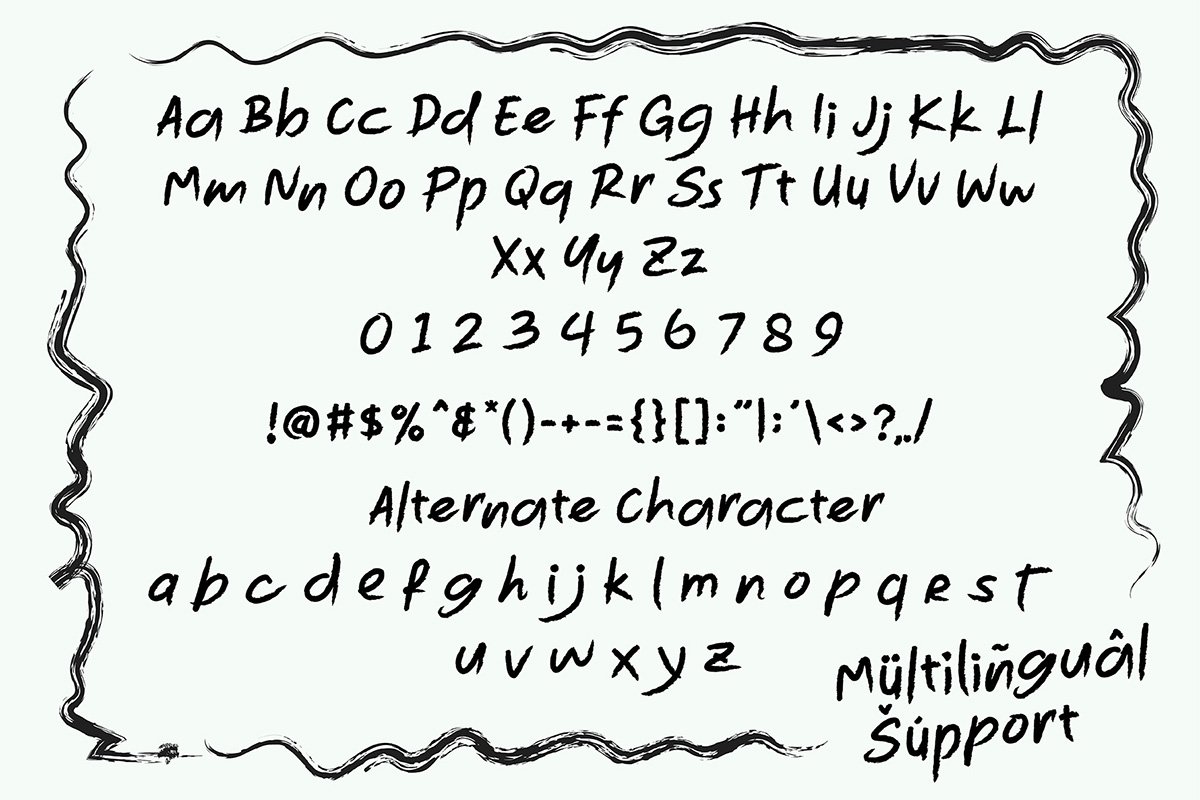 Aa Bb Cc Dd Ee Ff Gg Hh Ii Jj Kk Ll
Mm Nn Oo Pp Qq Rr Ss Tt Uu Vv Ww
Xx Yy Zz
0 1 2 3 4 5 6 7 8 9
!@#$%^&*()-+-={}[]:"|;'\<>?,./
Alternate Character
a b c d e f g h i j k l m n o p q r s t
u v w x y z
Mültiliñguâl
Šúpport